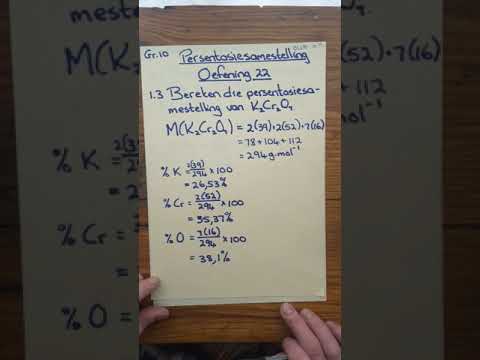 Gr.10 Persentasiesamestelling
Oefening 22
1.3 Bereken die persentasiesa-
mestelling van K₂Cr₂O₇
M(K₂Cr₂O₇) = 2(39)+2(52)+7(16)
= 78+104+112
= 294 g.mol⁻¹
% K = 2(39)/294 × 100
= 26,53%
% Cr = 2(52)/294 × 100
= 35,37%
% O = 7(16)/294 × 100
= 38,1%